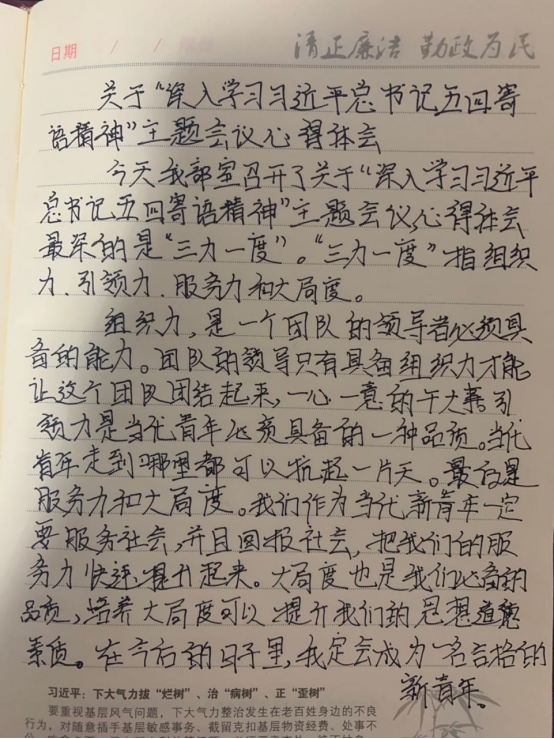 日期 / /
清正廉洁 勤政为民
关于“深入学习习近平总书记五四寄
语精神”主题会议心得体会
今天我部室召开了关于“深入学习习近平
总书记五四寄语精神”主题会议,心得体会
最深的是“三力一度”。“三力一度”指组织
力、引领力、服务力和大局度。
组织力,是一个团队的领导者必须具
备的能力。团队的领导只有具备组织力才能
让这个团队团结起来,一心一意的干大事。引
领力是当代青年必须具备的一种品质。当代
青年走到哪里都可以抗起一片天。最后是
服务力和大局度。我们作为当代新青年一定
要服务社会,并且回报社会,把我们的服
务力快速提升起来。大局度也是我们必备的
品质,培养大局度可以提升我们的思想道德
素质。在今后的日子里,我定会成为一名合格的
新青年。
习近平:下大气力拔“烂树”、治“病树”、正“歪树”
要重视基层风气问题,下大气力整治发生在老百姓身边的不良
行为,对随意插手基层敏感事务、截留克扣基层物资经费、处事不